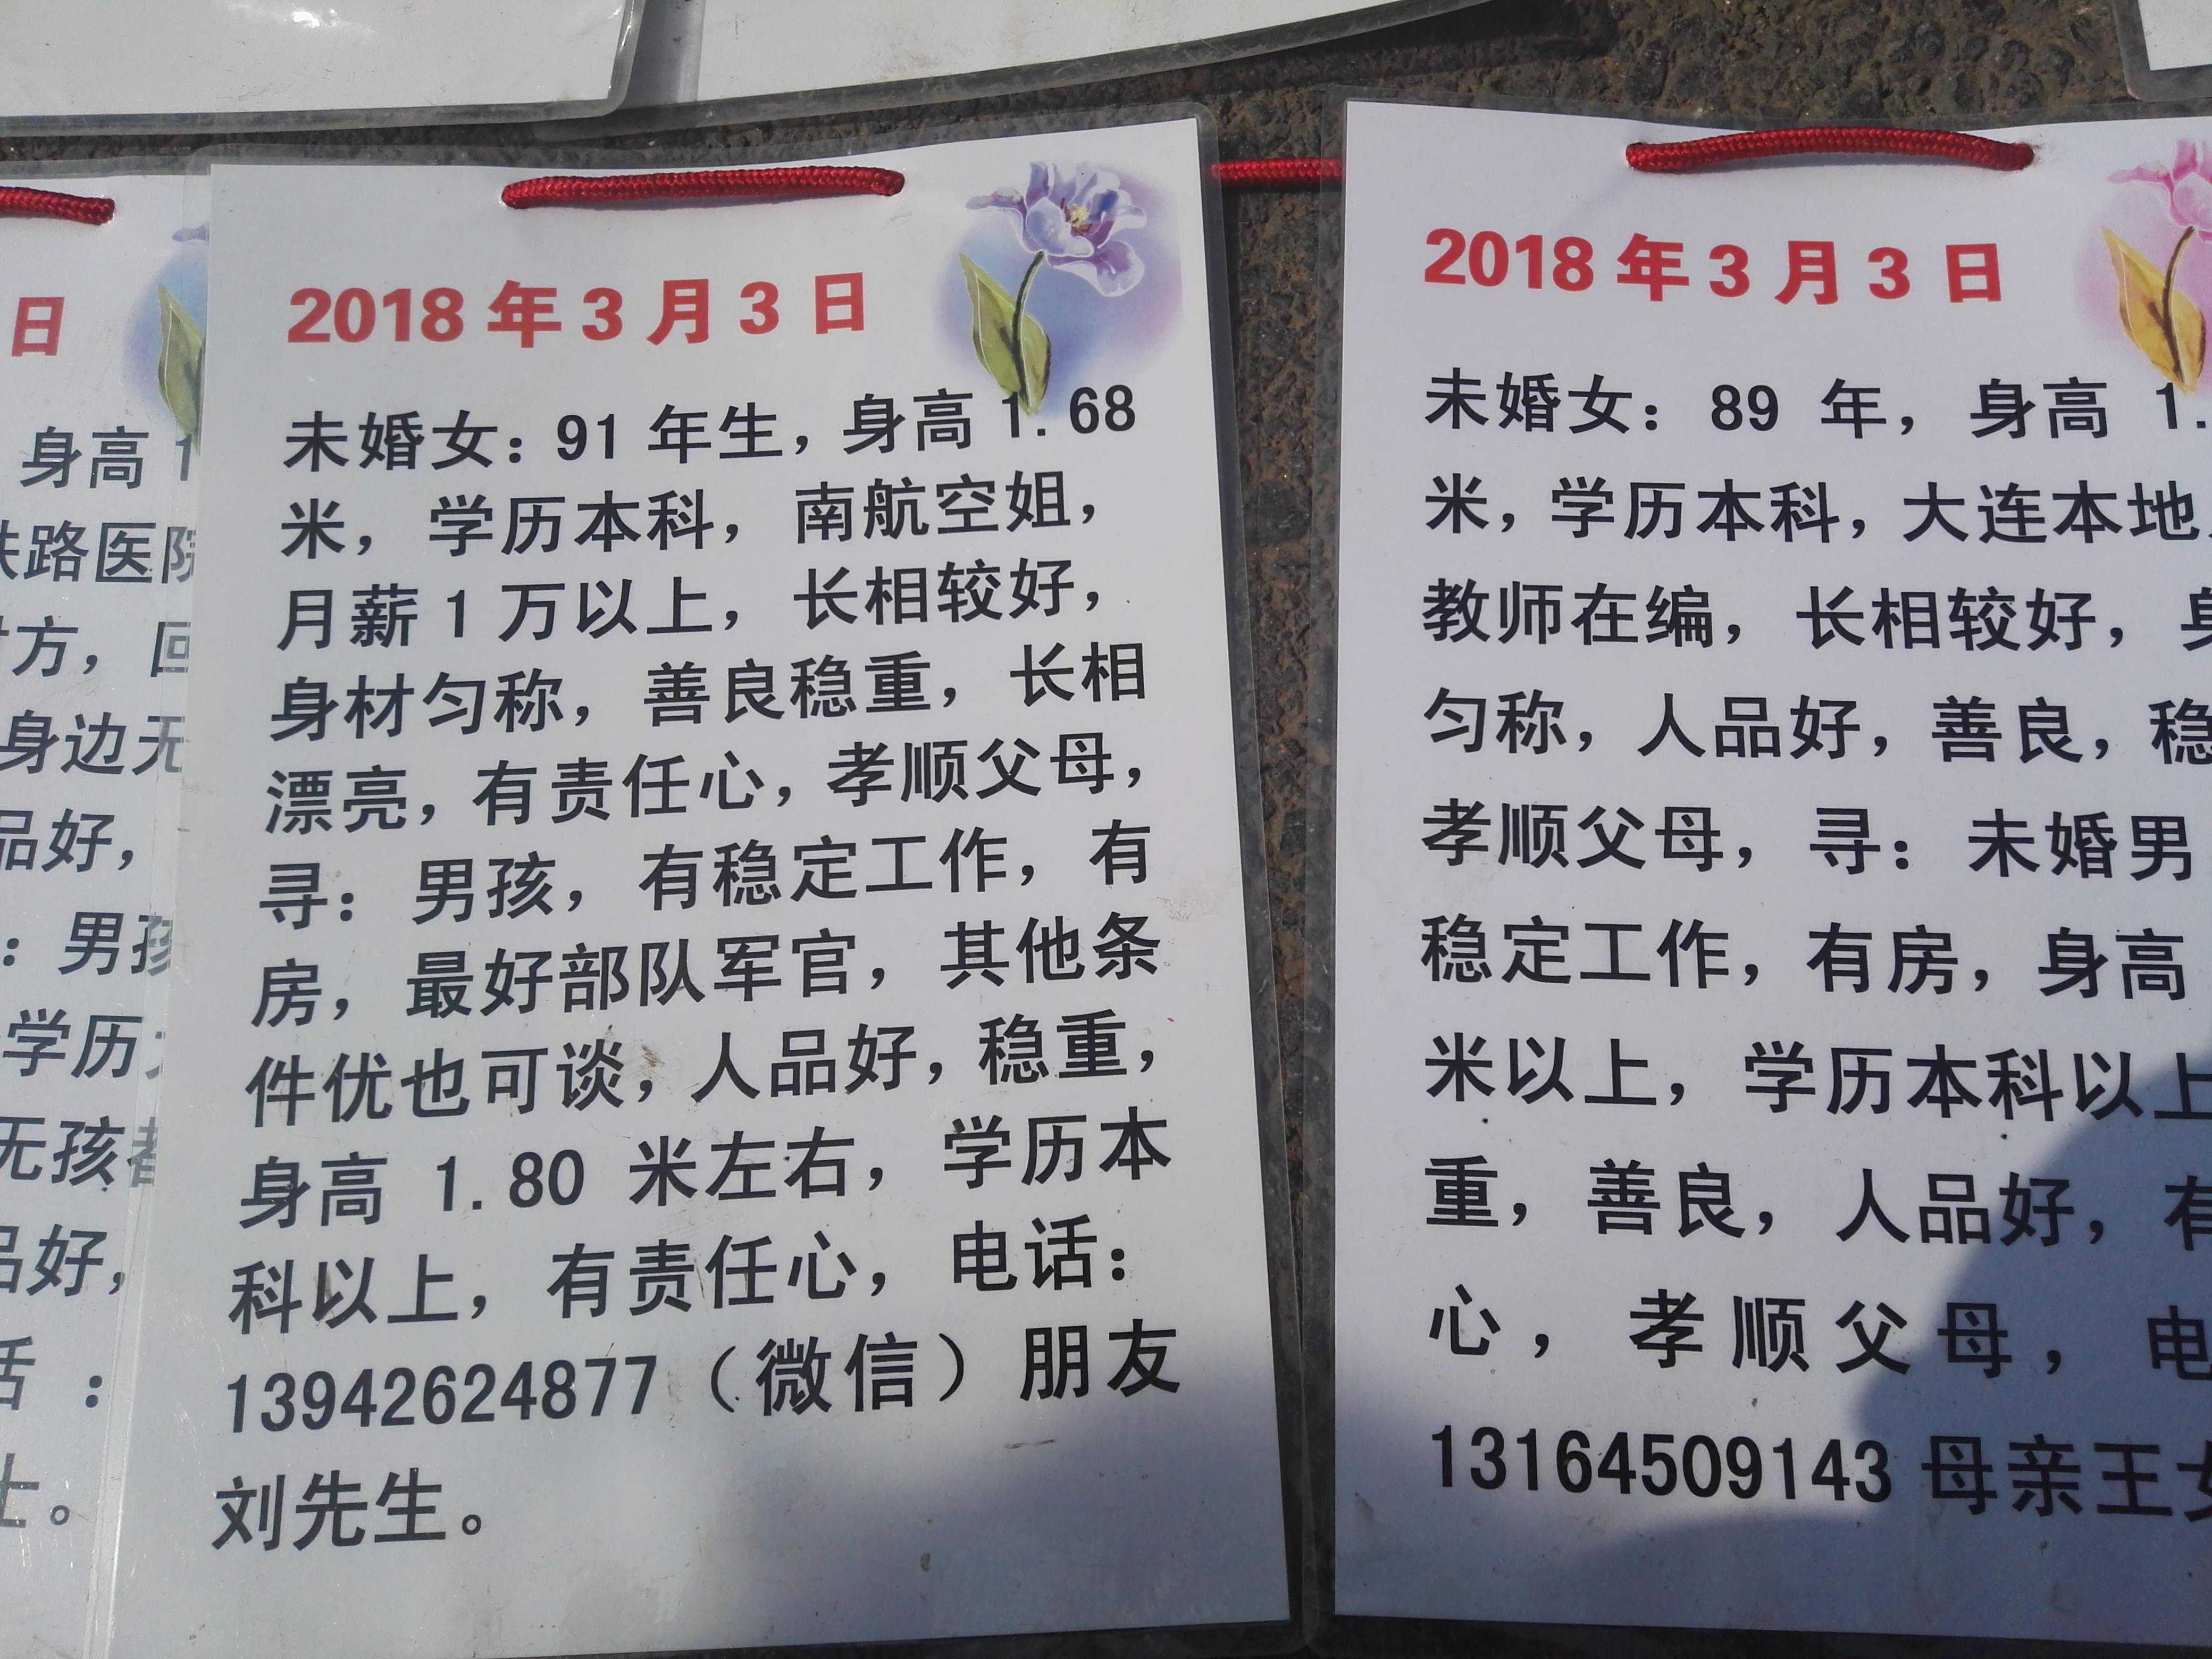 日
身高1
铁路医院
方，回
身边无
品好，
：男孩
学历
无孩都
品好，
话：
士。
2018年3月3日
未婚女：91年生，身高1.68
米，学历本科，南航空姐，
月薪1万以上，长相较好，
身材匀称，善良稳重，长相
漂亮，有责任心，孝顺父母，
寻：男孩，有稳定工作，有
房，最好部队军官，其他条
件优也可谈，人品好，稳重，
身高 1.80 米左右，学历本
科以上，有责任心，电话：
13942624877（微信）朋友
刘先生。
2018年3月3日
未婚女：89 年，身高 1.
米，学历本科，大连本地
教师在编，长相较好，身
匀称，人品好，善良，稳
孝顺父母，寻：未婚男
稳定工作，有房，身高
米以上，学历本科以上
重，善良，人品好，有
心，孝顺父母，电
13164509143 母亲王女